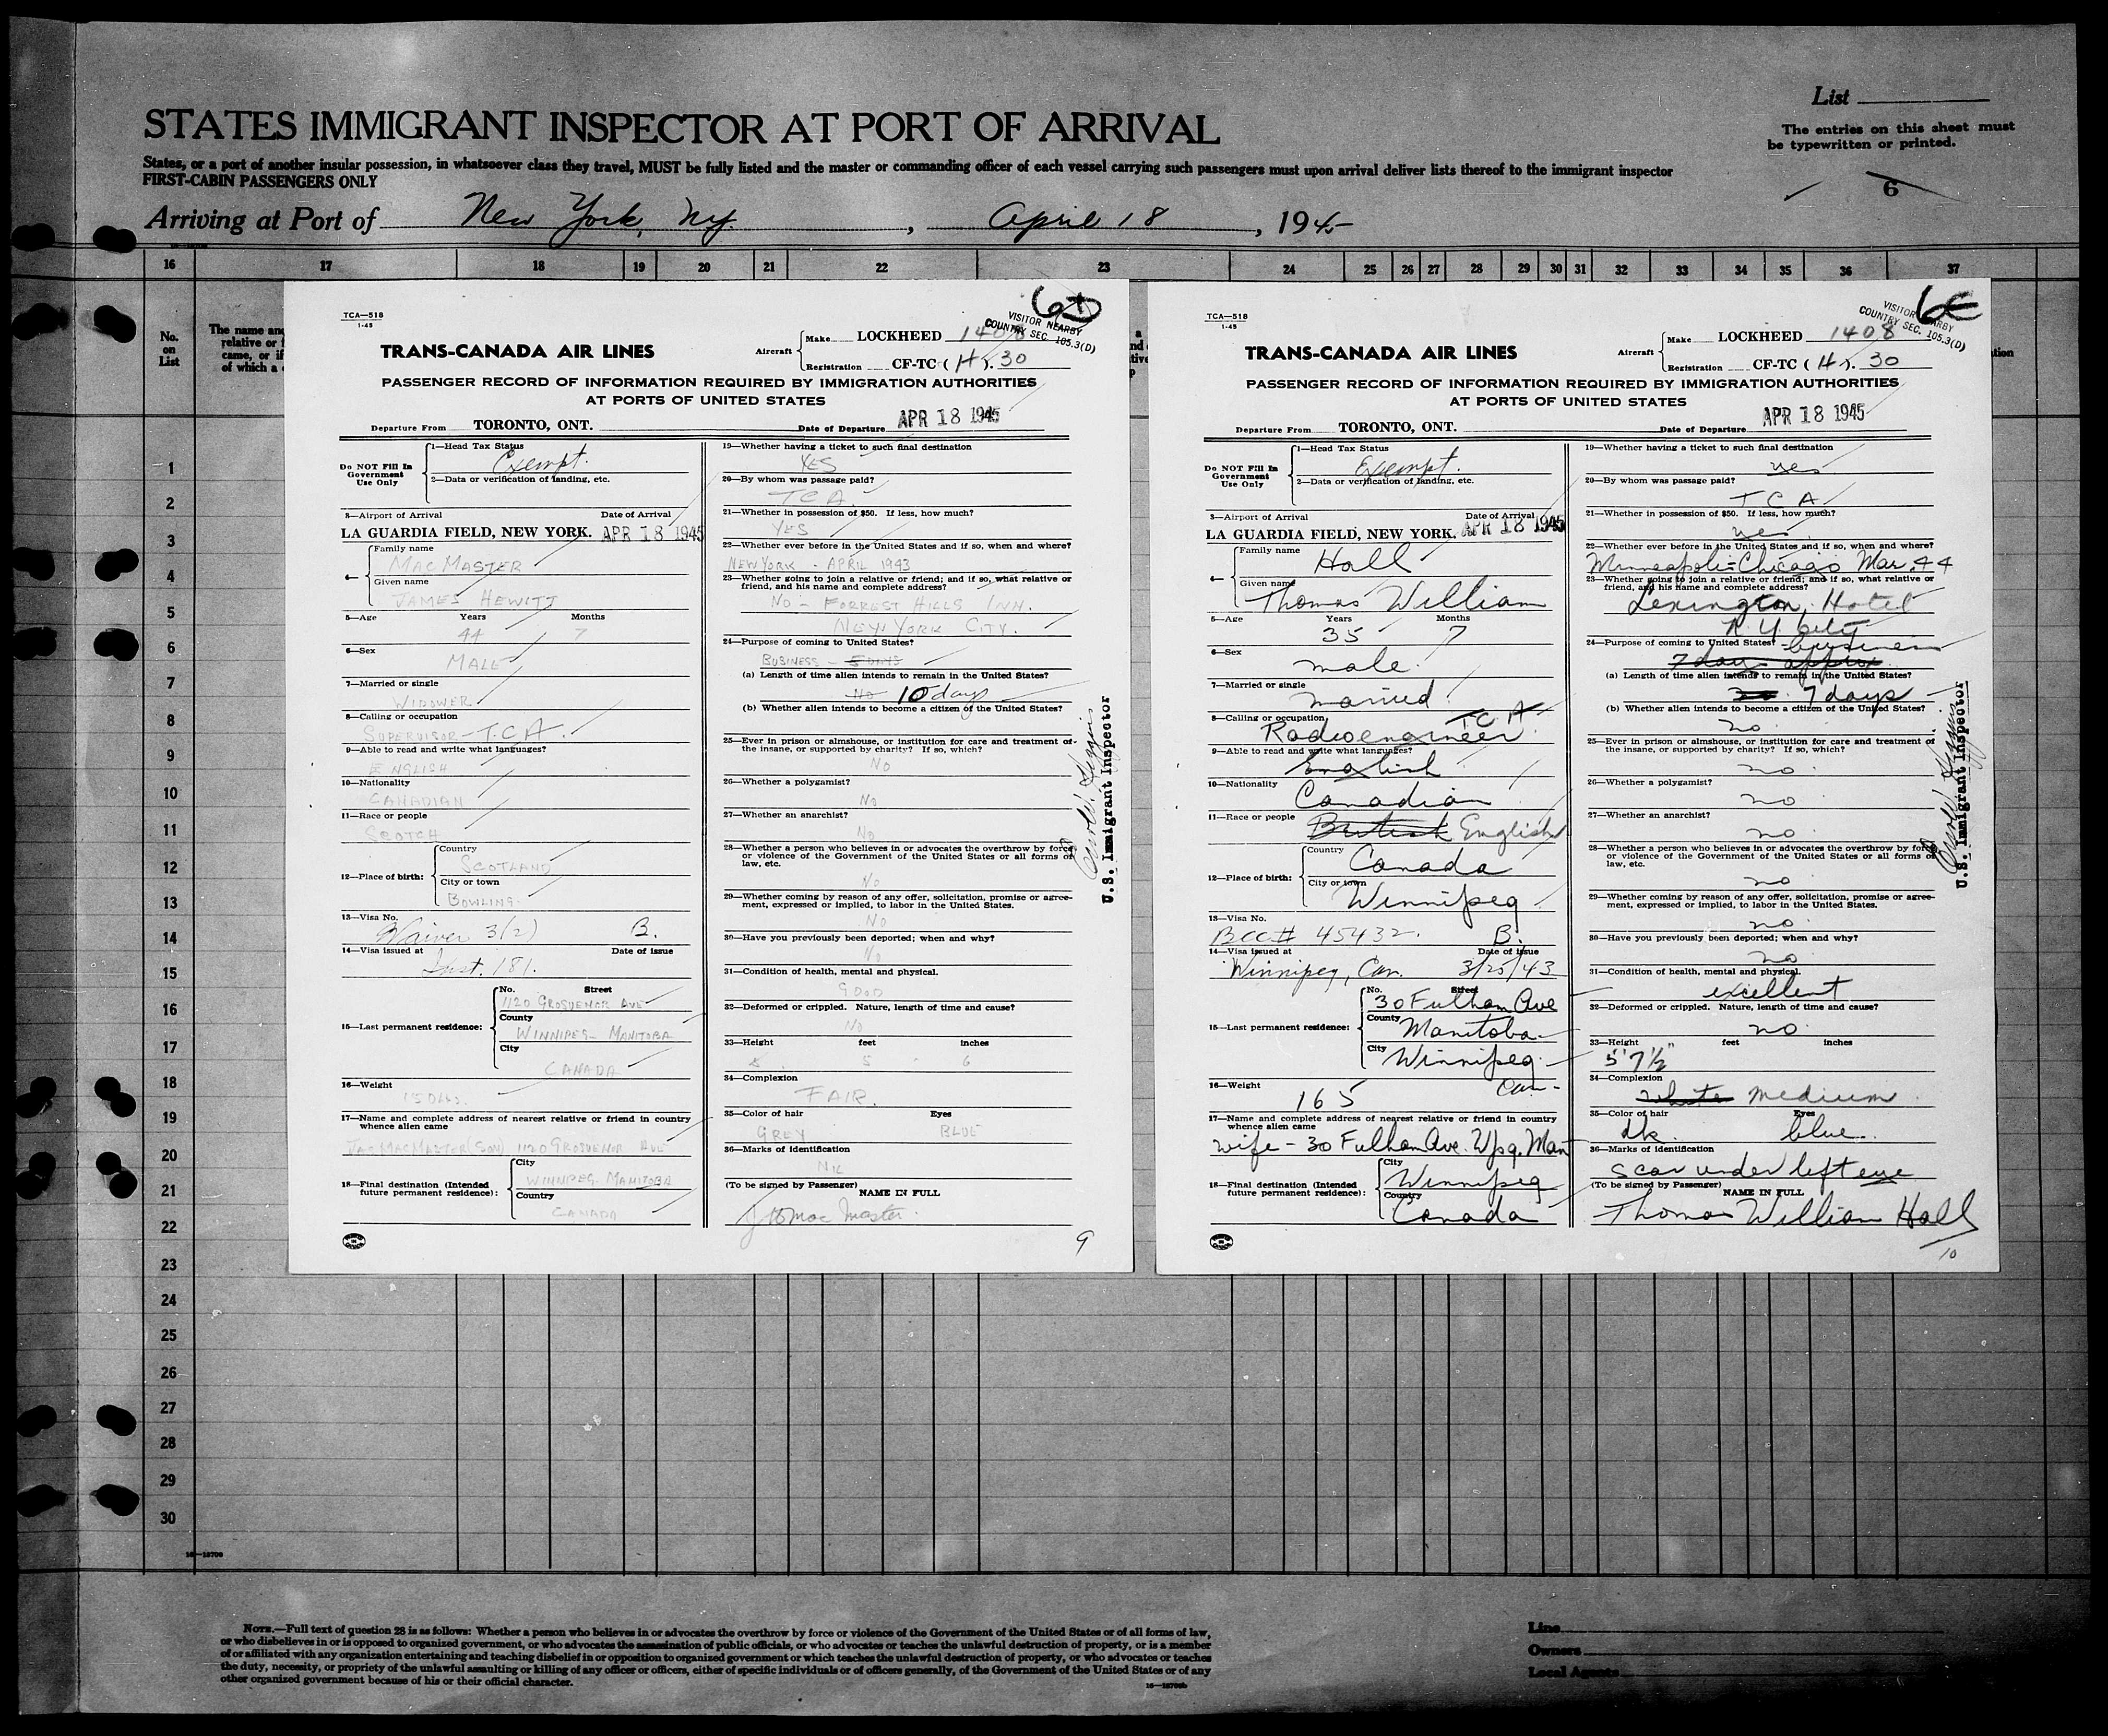 List
STATES IMMIGRANT INSPECTOR AT PORT OF ARRIVAL
The entries on this sheet must
be typewritten or printed.
States, or a port of another insular possession, in whatsoever class they travel, MUST be fully listed and the master or commanding officer of each vessel carrying such passengers must upon arrival deliver lists thereof to the immigrant inspector
FIRST-CABIN PASSENGERS ONLY
6
Arriving at Port of New York, Ny. , April 18 , 1945
16 17 18 19 20 21 22 23 24 25 26 27 28 29 30 31 32 33 34 35 36 37
No.
on
List
The name and
relative or f
came, or if
of which a
1
2
3
4
5
6
7
8
9
10
11
12
13
14
15
16
17
18
19
20
21
22
23
24
25
26
27
28
29
30
TCA—518
1-45
6D
VISITOR NEARBY
COUNTRY SEC. 105.3(D)
TRANS-CANADA AIR LINES
Aircraft Make LOCKHEED 1408
Registration CF-TC (H). 30
PASSENGER RECORD OF INFORMATION REQUIRED BY IMMIGRATION AUTHORITIES
AT PORTS OF UNITED STATES
Departure From TORONTO, ONT. Date of Departure APR 18 1945
Do NOT Fill In
Government
Use Only
1—Head Tax Status
Exempt.
2—Data or verification of landing, etc.
3—Airport of Arrival Date of Arrival
LA GUARDIA FIELD, NEW YORK. APR 18 1945
4— Family name
MACMASTER
Given name
JAMES HEWITT
5—Age Years Months
44 7
6—Sex
MALE
7—Married or single
WIDOWER
8—Calling or occupation
SUPERVISOR—T.C.A.
9—Able to read and write what languages?
ENGLISH
10—Nationality
CANADIAN
11—Race or people
SCOTCH
12—Place of birth: Country
SCOTLAND
City or town
BOWLING.
13—Visa No.
Waiver 3(2) B.
14—Visa issued at Date of issue
Inst. 181.
15—Last permanent residence: No. Street
1120 GROSVENOR AVE
County
WINNIPEG—MANITOBA
City
CANADA
16—Weight
150 lbs.
17—Name and complete address of nearest relative or friend in country
whence alien came
JA—MACMASTER (SON) 1120 GROSVENOR AVE
18—Final destination (Intended
future permanent residence): City
WINNIPEG. MANITOBA
Country
CANADA
19—Whether having a ticket to such final destination
YES
20—By whom was passage paid?
TCA
21—Whether in possession of $50. If less, how much?
YES
22—Whether ever before in the United States and if so, when and where?
NEW YORK - APRIL 1943
23—Whether going to join a relative or friend; and if so, what relative or
friend, and his name and complete address?
NO — FORREST HILLS INN.
NEW YORK CITY.
24—Purpose of coming to United States?
BUSINESS — 5 DAYS
(a) Length of time alien intends to remain in the United States?
No 10 days
(b) Whether alien intends to become a citizen of the United States?
25—Ever in prison or almshouse, or institution for care and treatment of
the insane, or supported by charity? If so, which?
NO
26—Whether a polygamist?
NO
27—Whether an anarchist?
NO
28—Whether a person who believes in or advocates the overthrow by force
or violence of the Government of the United States or all forms of
law, etc.
NO
29—Whether coming by reason of any offer, solicitation, promise or agree-
ment, expressed or implied, to labor in the United States.
NO
30—Have you previously been deported; when and why?
NO
31—Condition of health, mental and physical.
GOOD
32—Deformed or crippled. Nature, length of time and cause?
NO
33—Height feet inches
5 6
34—Complexion
FAIR.
35—Color of hair Eyes
GREY BLUE
36—Marks of identification
NIL
(To be signed by Passenger) NAME IN FULL
J H MacMaster.
9
U.S. Immigrant Inspector
TCA—518
1-45
6E
VISITOR NEARBY
COUNTRY SEC. 105.3(D)
TRANS-CANADA AIR LINES
Aircraft Make LOCKHEED 1408
Registration CF-TC (H). 30
PASSENGER RECORD OF INFORMATION REQUIRED BY IMMIGRATION AUTHORITIES
AT PORTS OF UNITED STATES
Departure From TORONTO, ONT. Date of Departure APR 18 1945
Do NOT Fill In
Government
Use Only
1—Head Tax Status
Exempt.
2—Data or verification of landing, etc.
3—Airport of Arrival Date of Arrival
LA GUARDIA FIELD, NEW YORK. APR 18 1945
4— Family name
Hall
Given name
Thomas William
5—Age Years Months
35 7
6—Sex
male
7—Married or single
married
8—Calling or occupation
Radio engineer TCA
9—Able to read and write what languages?
English
10—Nationality
Canadian
11—Race or people
British English
12—Place of birth: Country
Canada
City or town
Winnipeg
13—Visa No.
BCC# 45432. B.
14—Visa issued at Date of issue
Winnipeg, Can. 3/25/43
15—Last permanent residence: No. Street
30 Fulham Ave
County
Manitoba
City
Winnipeg
Can-
16—Weight
165
17—Name and complete address of nearest relative or friend in country
whence alien came
wife — 30 Fulham Ave. Wpg. Man
18—Final destination (Intended
future permanent residence): City
Winnipeg
Country
Canada
19—Whether having a ticket to such final destination
yes
20—By whom was passage paid?
TCA
21—Whether in possession of $50. If less, how much?
yes
22—Whether ever before in the United States and if so, when and where?
Minneapolis-Chicago Mar. 44
23—Whether going to join a relative or friend; and if so, what relative or
friend, and his name and complete address?
Lexington, Hotel
N.Y. city
24—Purpose of coming to United States? business
7 days approx
(a) Length of time alien intends to remain in the United States?
7 days
(b) Whether alien intends to become a citizen of the United States?
no
25—Ever in prison or almshouse, or institution for care and treatment of
the insane, or supported by charity? If so, which?
no
26—Whether a polygamist?
no
27—Whether an anarchist?
no
28—Whether a person who believes in or advocates the overthrow by force
or violence of the Government of the United States or all forms of
law, etc.
no
29—Whether coming by reason of any offer, solicitation, promise or agree-
ment, expressed or implied, to labor in the United States.
no
30—Have you previously been deported; when and why?
no
31—Condition of health, mental and physical.
excellent
32—Deformed or crippled. Nature, length of time and cause?
no
33—Height feet inches
5' 7½"
34—Complexion
white medium
35—Color of hair Eyes
dk. blue
36—Marks of identification
scar under left eye
(To be signed by Passenger) NAME IN FULL
Thomas William Hall
10
U.S. Immigrant Inspector
NOTE.—Full text of question 28 is as follows: Whether a person who believes in or advocates the overthrow by force or violence of the Government of the United States or of all forms of law,
or who disbelieves in or is opposed to organized government, or who advocates the assassination of public officials, or who advocates or teaches the unlawful destruction of property, or is a member
of or affiliated with any organization entertaining and teaching disbelief in or opposition to organized government or which teaches the unlawful destruction of property, or who advocates or teaches
the duty, necessity, or propriety of the unlawful assaulting or killing of any officer or officers, either of specific individuals or of officers generally, of the Government of the United States or of any
other organized government because of his or their official character.
Line
Owners
Local Agents